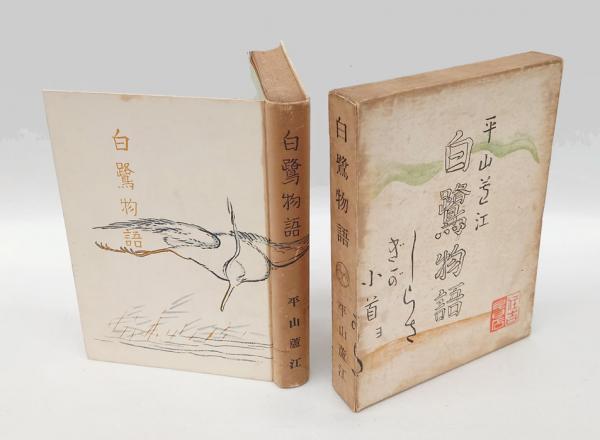 白鷺物語
白鷺物語
平山蘆江
白鷺物語
平山蘆江
平山芦江
白鷺物語
しらさ
ぎが
小首ヨ